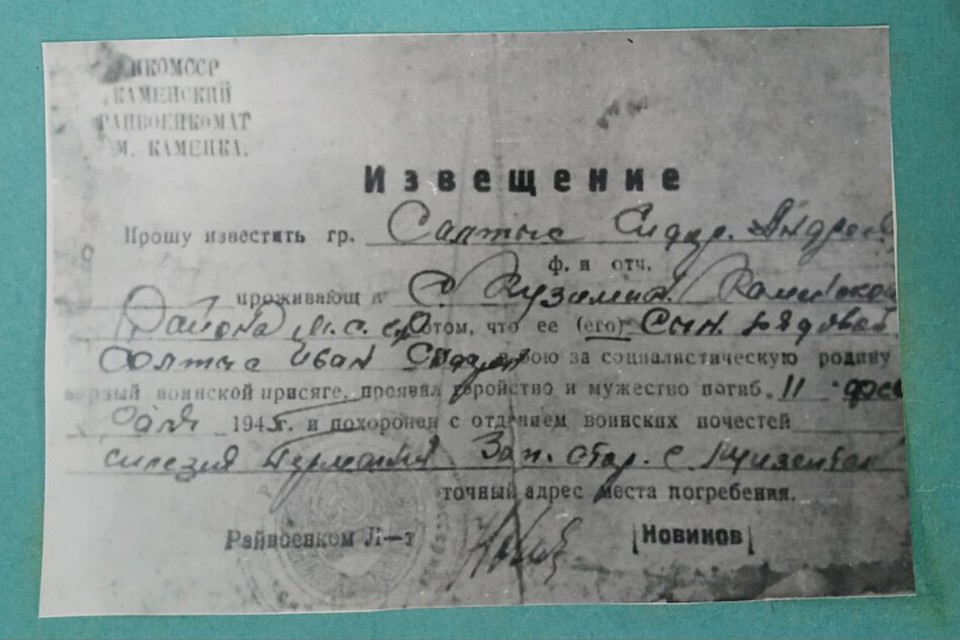 НКОМССР
КАМЕНСКИЙ
РАЙВОЕНКОМАТ
М. КАМЕНКА.
Извещение
Прошу известить гр. Салтыс Сидор. Андрее
ф. и отч.
проживающ с. Кузьмин. Каменском
Района М.С.С.Р. о том, что ее (его) Сын. рядовой
Солтыс Иван в бою за социалистическую родину
верный воинской присяге, проявил геройство и мужество погиб. 11 фев
1945г. и похоронен с отданием воинских почестей
силезия Германия Зап. стар. с.
точный адрес места погребения.
Райвоенком Л—т Новиков